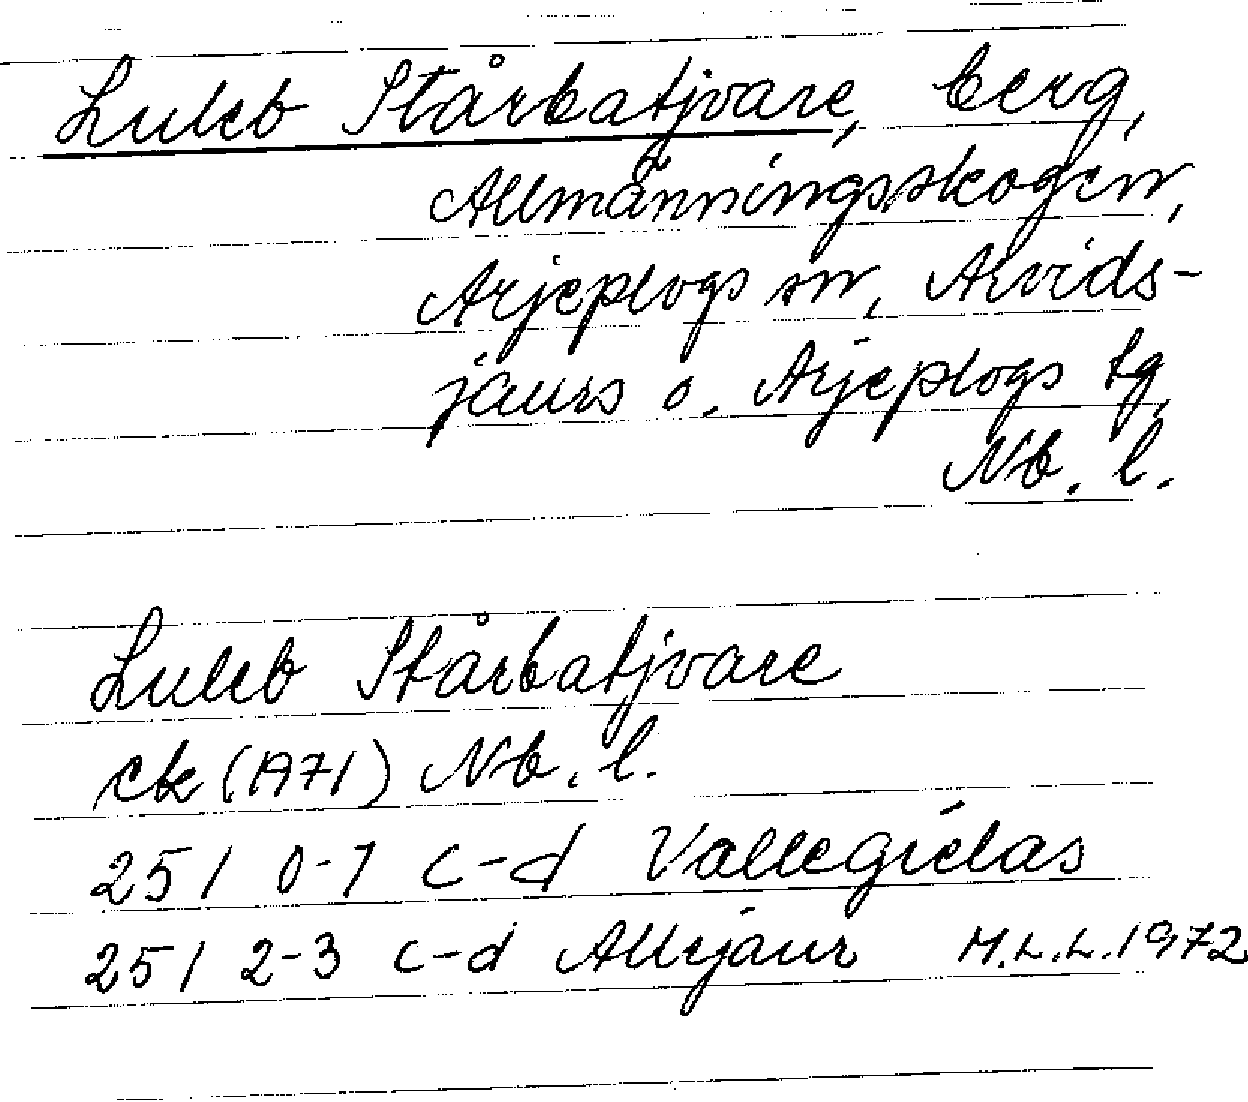 Luleb Stårbatjvare, berg,
Allmänningsskogen,
Arjeplogs sn, Arvids-
jaurs o. Arjeplogs tg,
Nb. l.
Luleb Stårbatjvare
ek (1971) Nb. l.
251 0-1 c-d Vallegielas
251 2-3 c-d Allejaur M.L.L. 1972